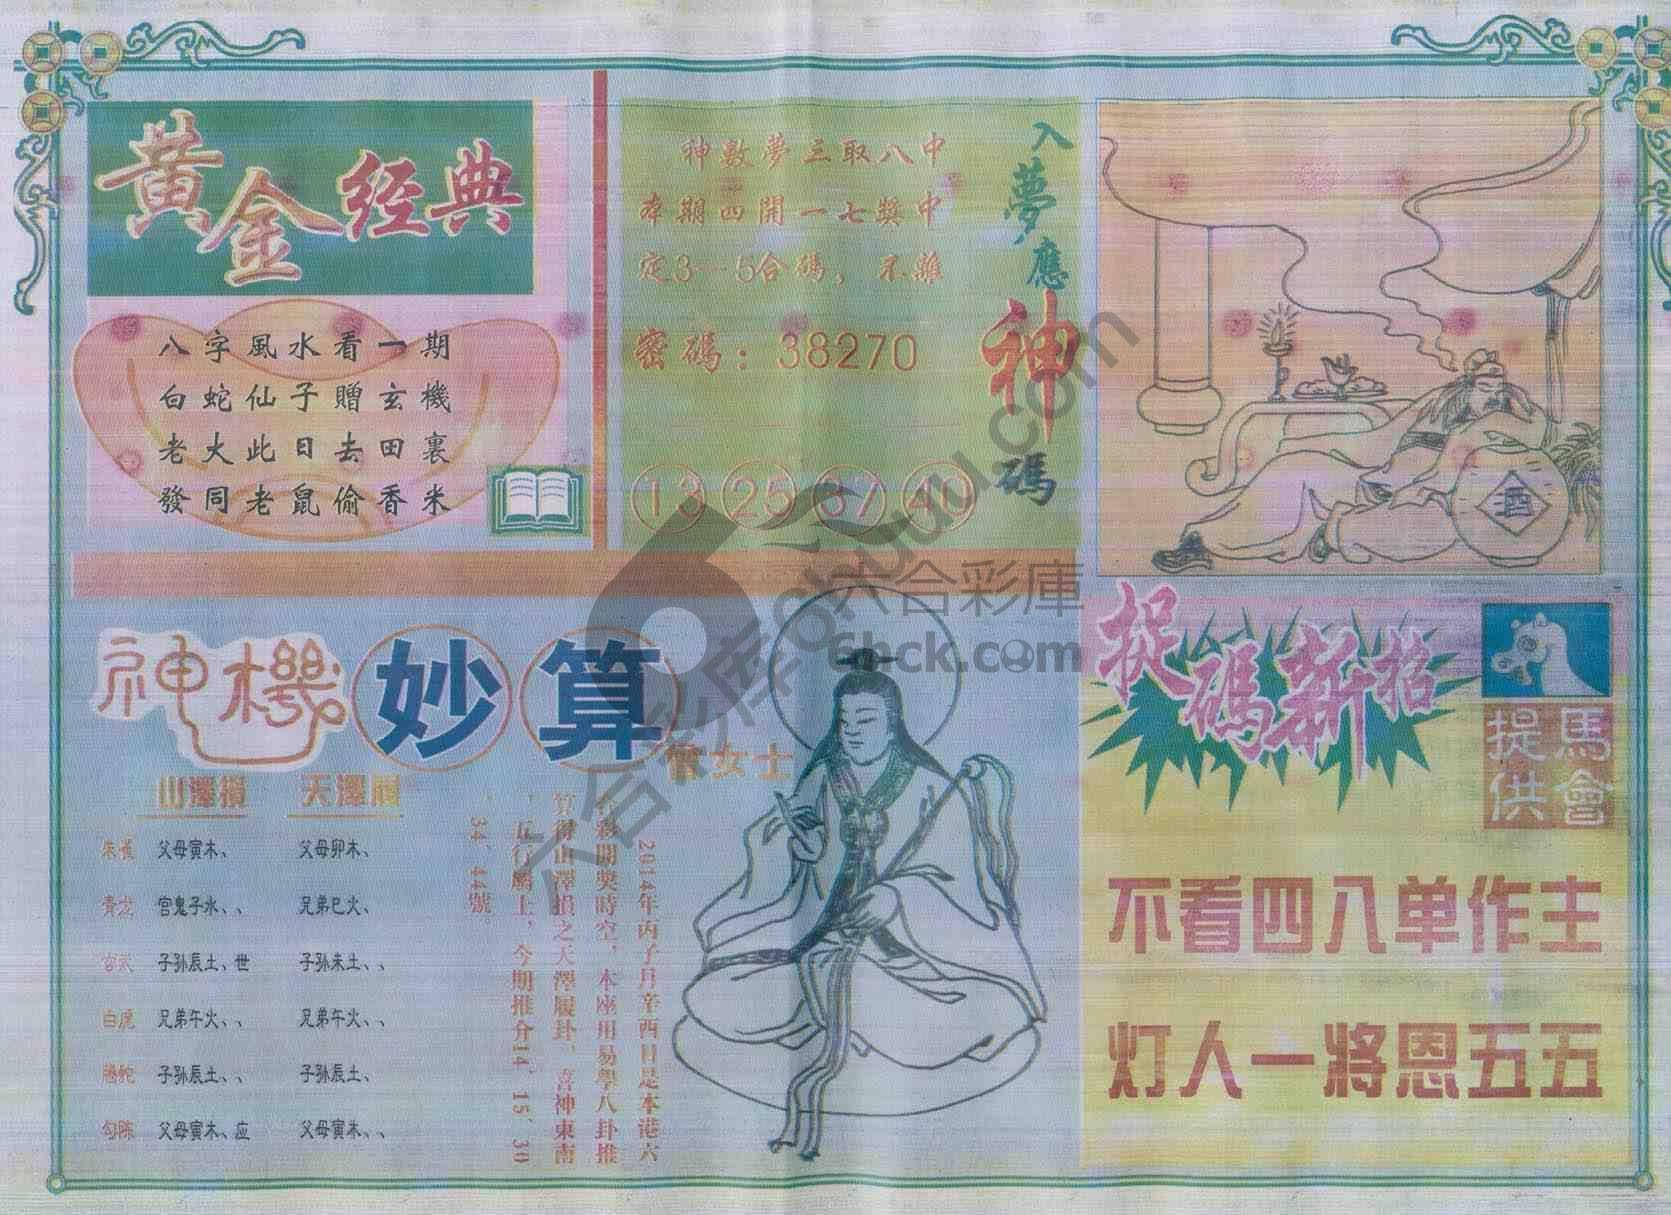 黄金经典
八字風水看一期
白蛇仙子贈玄機
老大此日去田裏
發同老鼠偷香米
入夢應神碼
神數夢三取八中
本期四開一七獎中
定3—5合碼，不難
密碼：38270
13 25 37 40
酒
六合彩庫
6hck.com
神機妙算
曾女士
山澤損 天澤履
朱雀 父母寅木、 父母卯木、
青龙 官鬼子水、、 兄弟巳火、
玄武 子孙辰土、世 子孙未土、、
白虎 兄弟午火、、 兄弟午火、、
腾蛇 子孙辰土、、 子孙辰土、
勾陈 父母寅木、应 父母寅木、、
2014年丙子月辛酉日是本港六
合彩開獎時空，本座用易學八卦推
算得山澤損之天澤履卦，喜神東南
，五行屬土，今期推介14、15、30
、34、44號。
捉碼新招
馬會提供
不看四八单作主
灯人一將恩五五